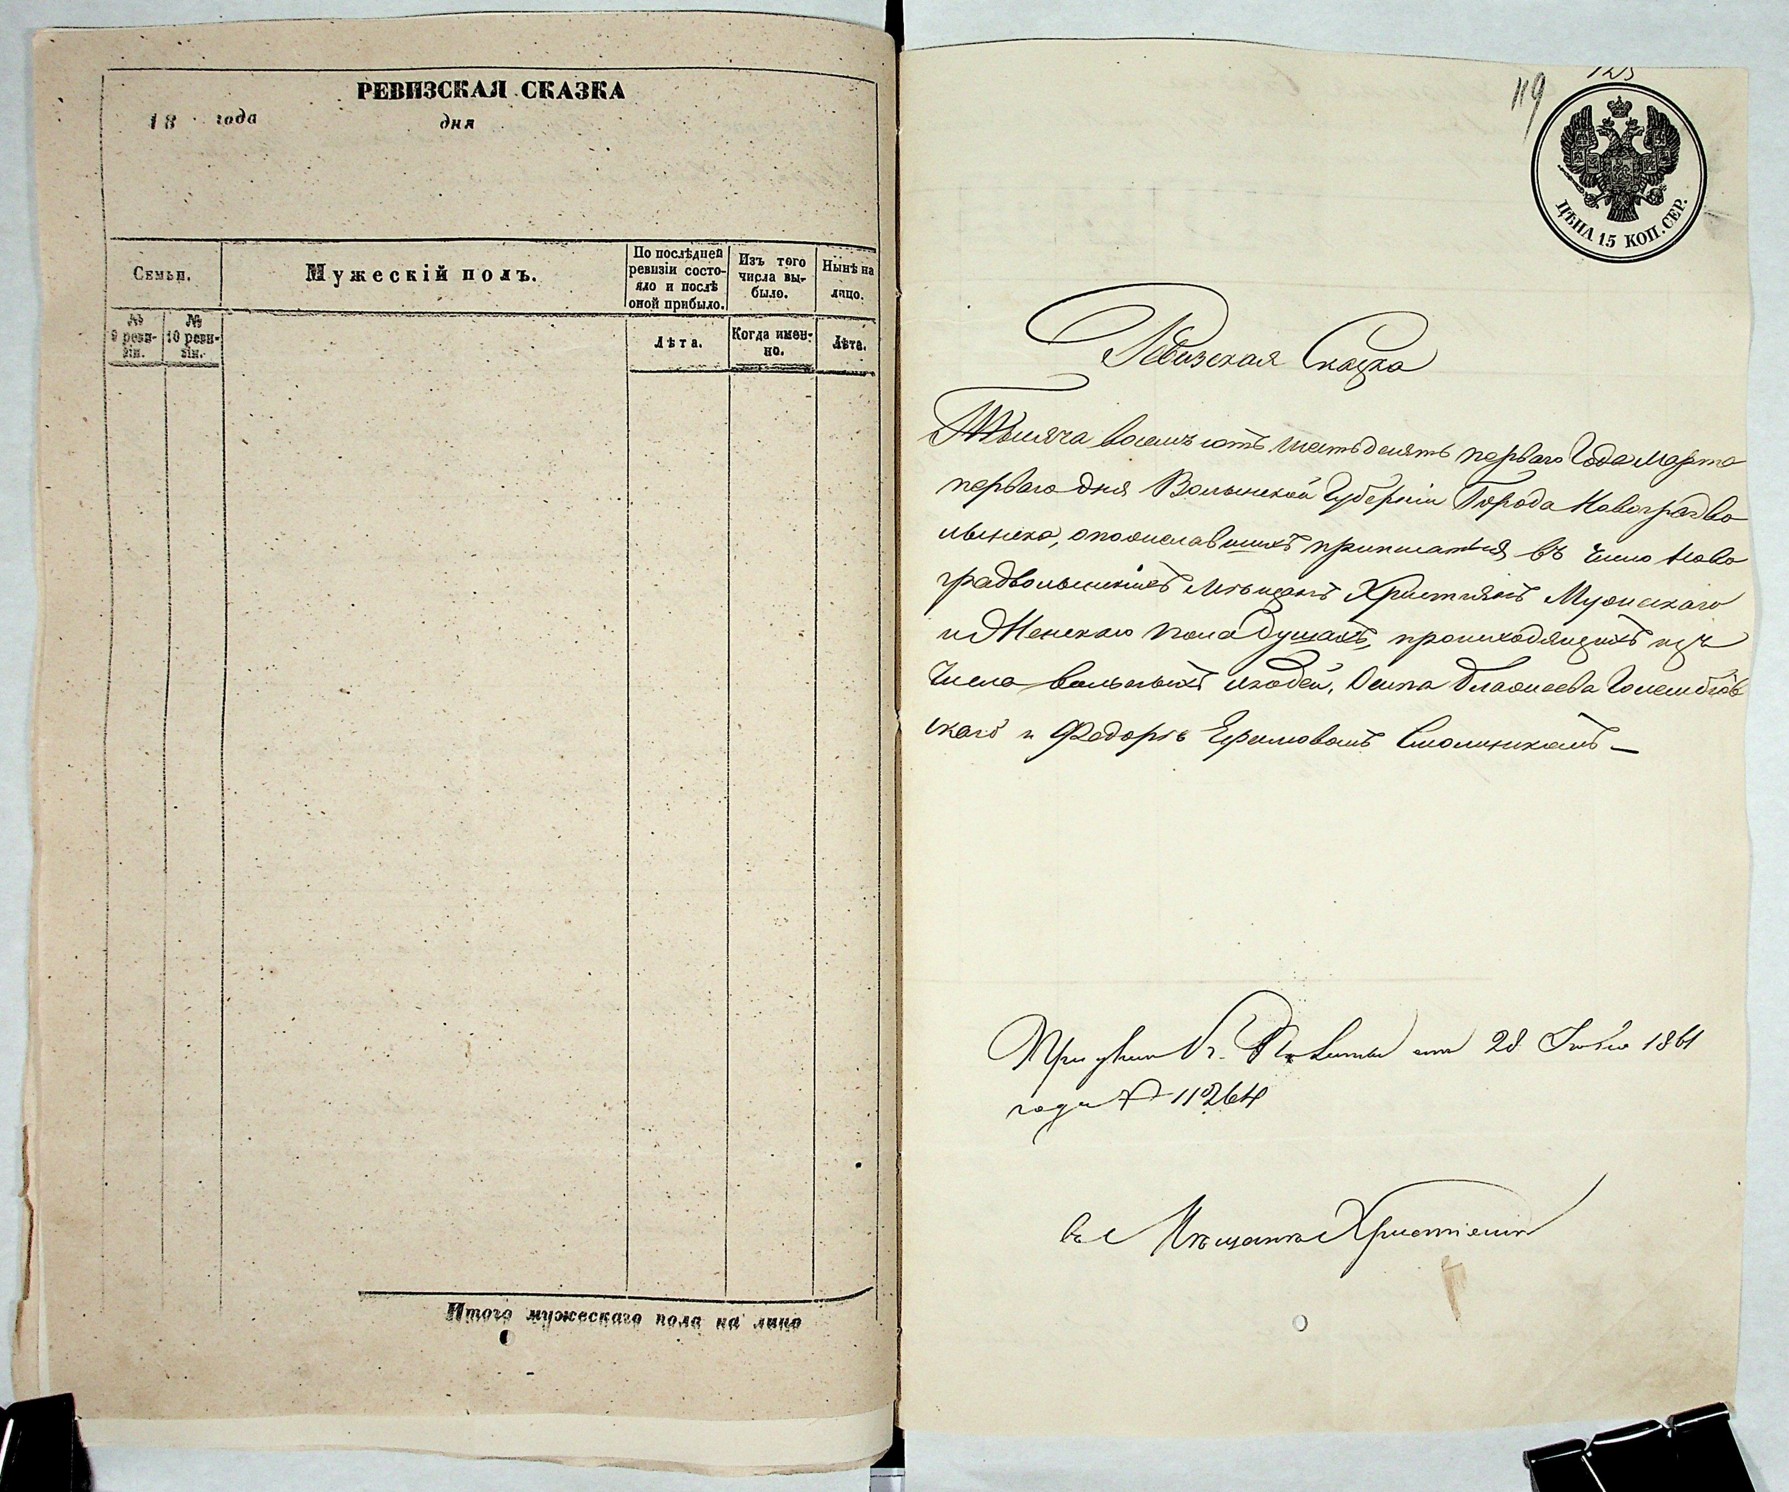 РЕВИЗСКАЯ СКАЗКА
18 года дня
Семьи.
Мужескій полъ.
По послѣдней ревизіи состояло и послѣ оной прибыло.
Изъ того числа выбыло.
Нынѣ на лицо.
№ 9 ревизіи.
№ 10 ревизіи.
Лѣта.
Когда именно.
Лѣта.
Итого мужескаго пола на лицо
119
123
ЦѢНА 15 КОП. СЕР.
Ревизская Сказка
Тысяча восемъ сотъ шестьдесятъ перваго Года Марта
перваго дня Волынской Губерніи Города Новоградво
лынска, о пожелавшихъ приписатья въ число Ново
градволынскихъ Мѣщанъ Христіянъ Мужескаго
и Женскаго пола душахъ, происходящихъ изъ
числа вольныхъ людей, Осипа
скаго и Федорѣ Ефимовомъ Смолинкомъ
При указѣ 28 1861
года № 11264
въ Мѣщане Христіяне